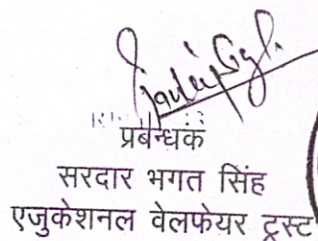 प्रबन्धक
सरदार भगत सिंह
एजुकेशनल वेलफेयर ट्रस्ट